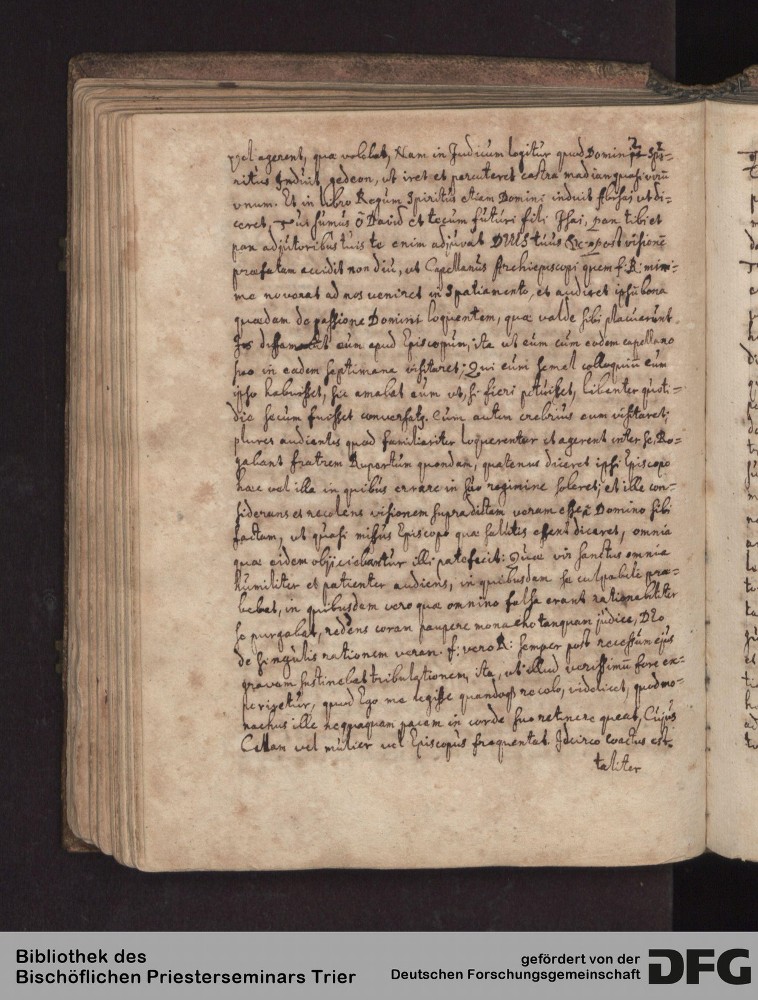 vel agerent, quæ volebat, Nam in Judicum legitur quod Domini Spi-
ritus Induit gedeon, ut iret et percuteret castra madian quasi virū
vnum. Et in libro Regum Spiritus etiam Domini induit Abisai ut di-
ceret, Tui sumus ô David et tecum futuri fili Isai, pax tibi et
pax adjutoribus tuis te enim adjuvat DEUS tuus &c. post visionē
præfatam accidit non diu, ut Capellanus Archiepiscopi quem f. R. mini-
me noverat ad nos veniret in Spatiamento, et audiret ipsū bona
quædam de passione Domini loquentem, quæ valde sibi placuerunt.
eum apud Episcopum, ita ut eum cum eodem capellano
suo in eadem septimana visitaret; Qui cum semel colloquium cum
ipso habuisset, sic amabat eum ut, si fieri potuisset, libenter quoti-
die secum fuisset conversatus. Cum autem crebrius eum visitaret;
plures audientes quod familiariter loquerentur et agerent inter se, Ro-
gabant fratrem Rupertum quondam, quatenus diceret ipsi Episcopo
hæc vel illa in quibus errare in suo regimine soleret; et ille con-
siderans et recolens visionem supradictam veram esse á Domino sibi
factam, ut quasi missus Episcopo quæ salutis essent diceret, omnia
quæ eidem objiciebantur illi patefecit: Quæ vir sanctus omnia
humiliter et patienter audiens, in quibusdam se culpabilē præ-
bebat, in quibusdam vero quæ omnino falsa erant rationabiliter
se purgabat, redens coram paupere monacho tanquam judice, DEO
de singulis rationem veram. f. vero R: semper post recessum ejus
gravem sustinebat tribulationem, ita, ut illud verissimū fore ex-
periretur, quod Ego me legisse quandoque recolo, videlicet, quod mo-
nachus ille nequaquam pacem in corde suo retinere queat, Cujus
Cellam vel mulier vel Episcopus frequentat. Idcirco coactus est
taliter
Bibliothek des
Bischöflichen Priesterseminars Trier
gefördert von der
Deutschen Forschungsgemeinschaft
DFG